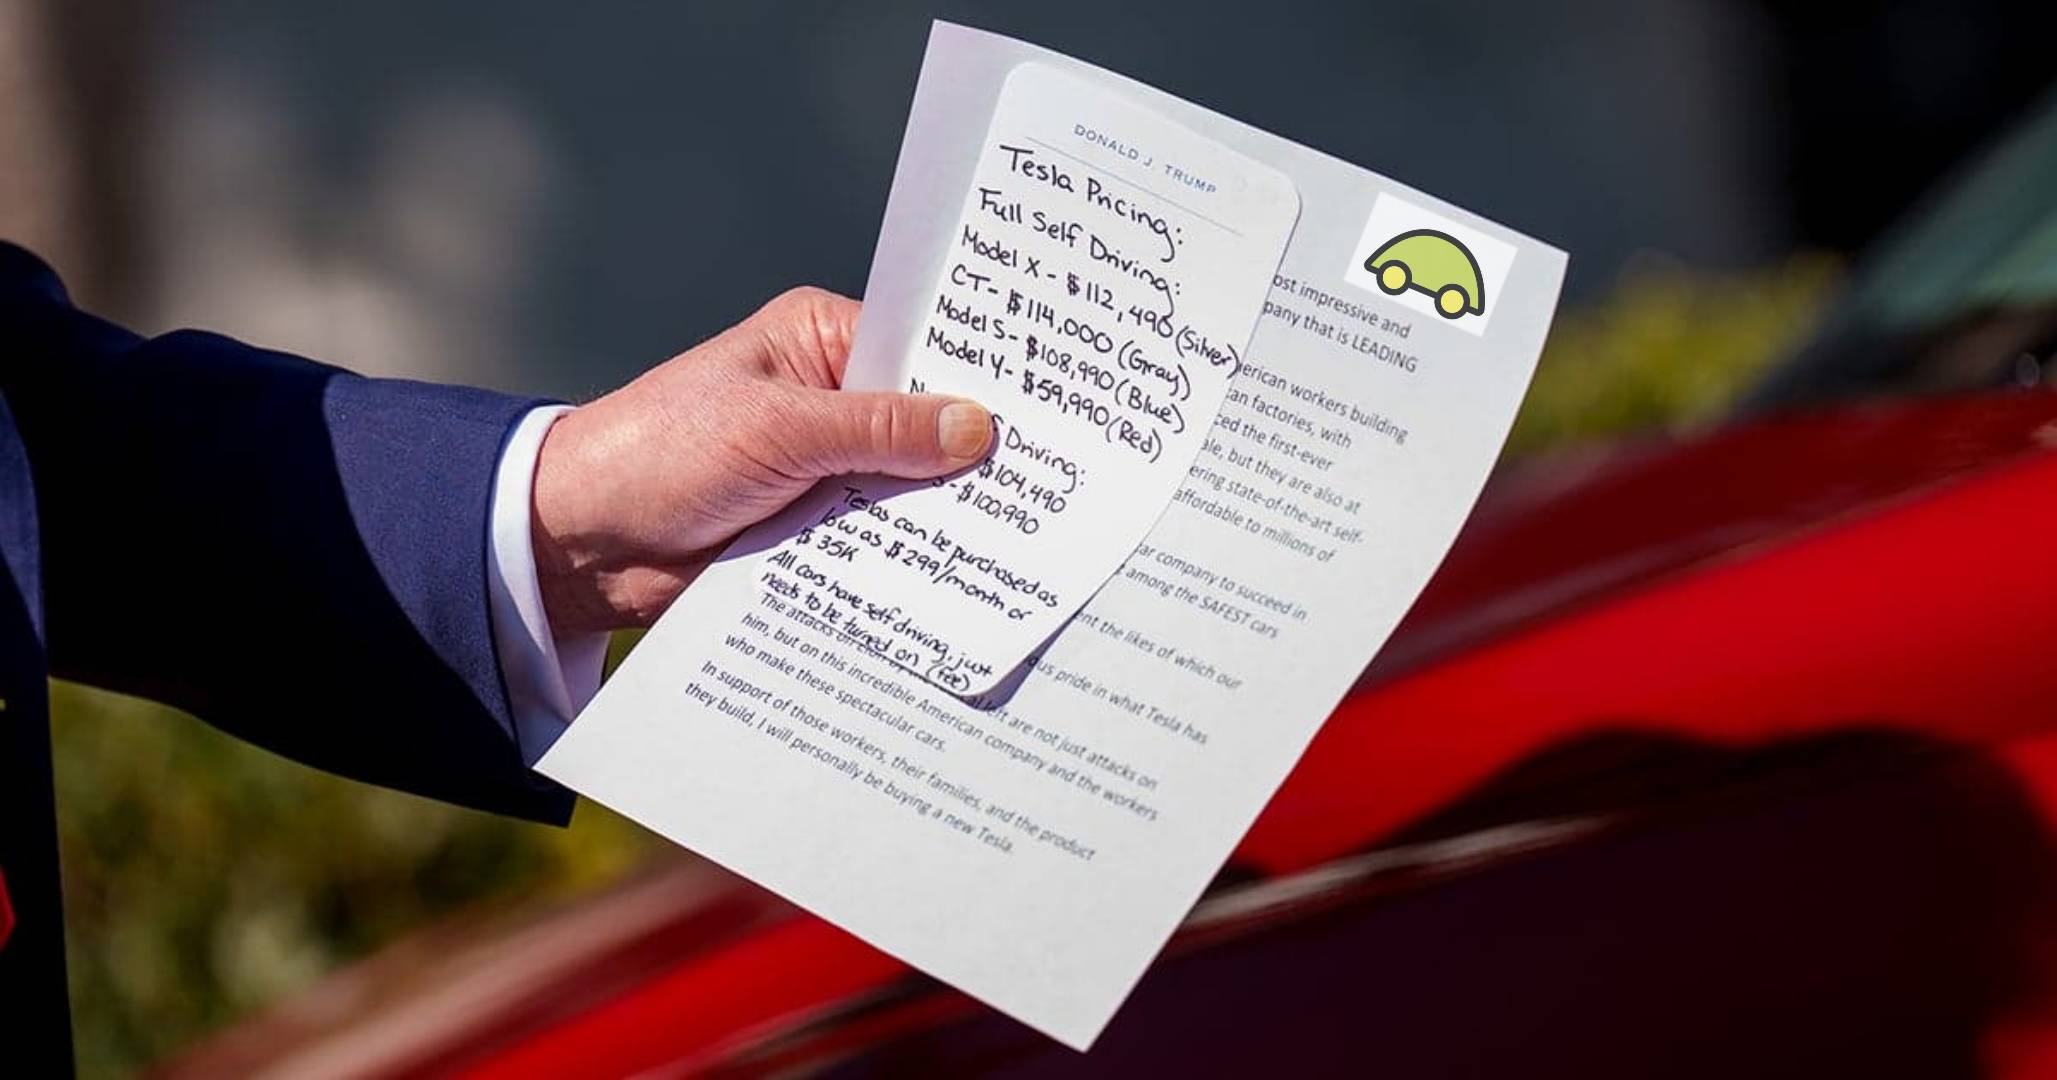 DONALD J. TRUMP
Tesla Pricing:
Full Self Driving:
Model X - $112,490 (Silver)
CT - $114,000 (Gray)
Model S - $108,990 (Blue)
Model Y - $59,990 (Red)
Driving:
$104,490
S - $100,990
Teslas can be purchased as
low as $299/month or
$35K
All cars have self driving, just
needs to be turned on (fee)
impressive and
that is LEADING
workers building
factories, with
the first-ever
but they are also at
state-of-the-art self-
affordable to millions of
company to succeed in
among the SAFEST cars
the likes of which our
pride in what Tesla has
The attacks on left are not just attacks on
him, but on this incredible American company and the workers
who make these spectacular cars.
In support of those workers, their families, and the product
they build, I will personally be buying a new Tesla.